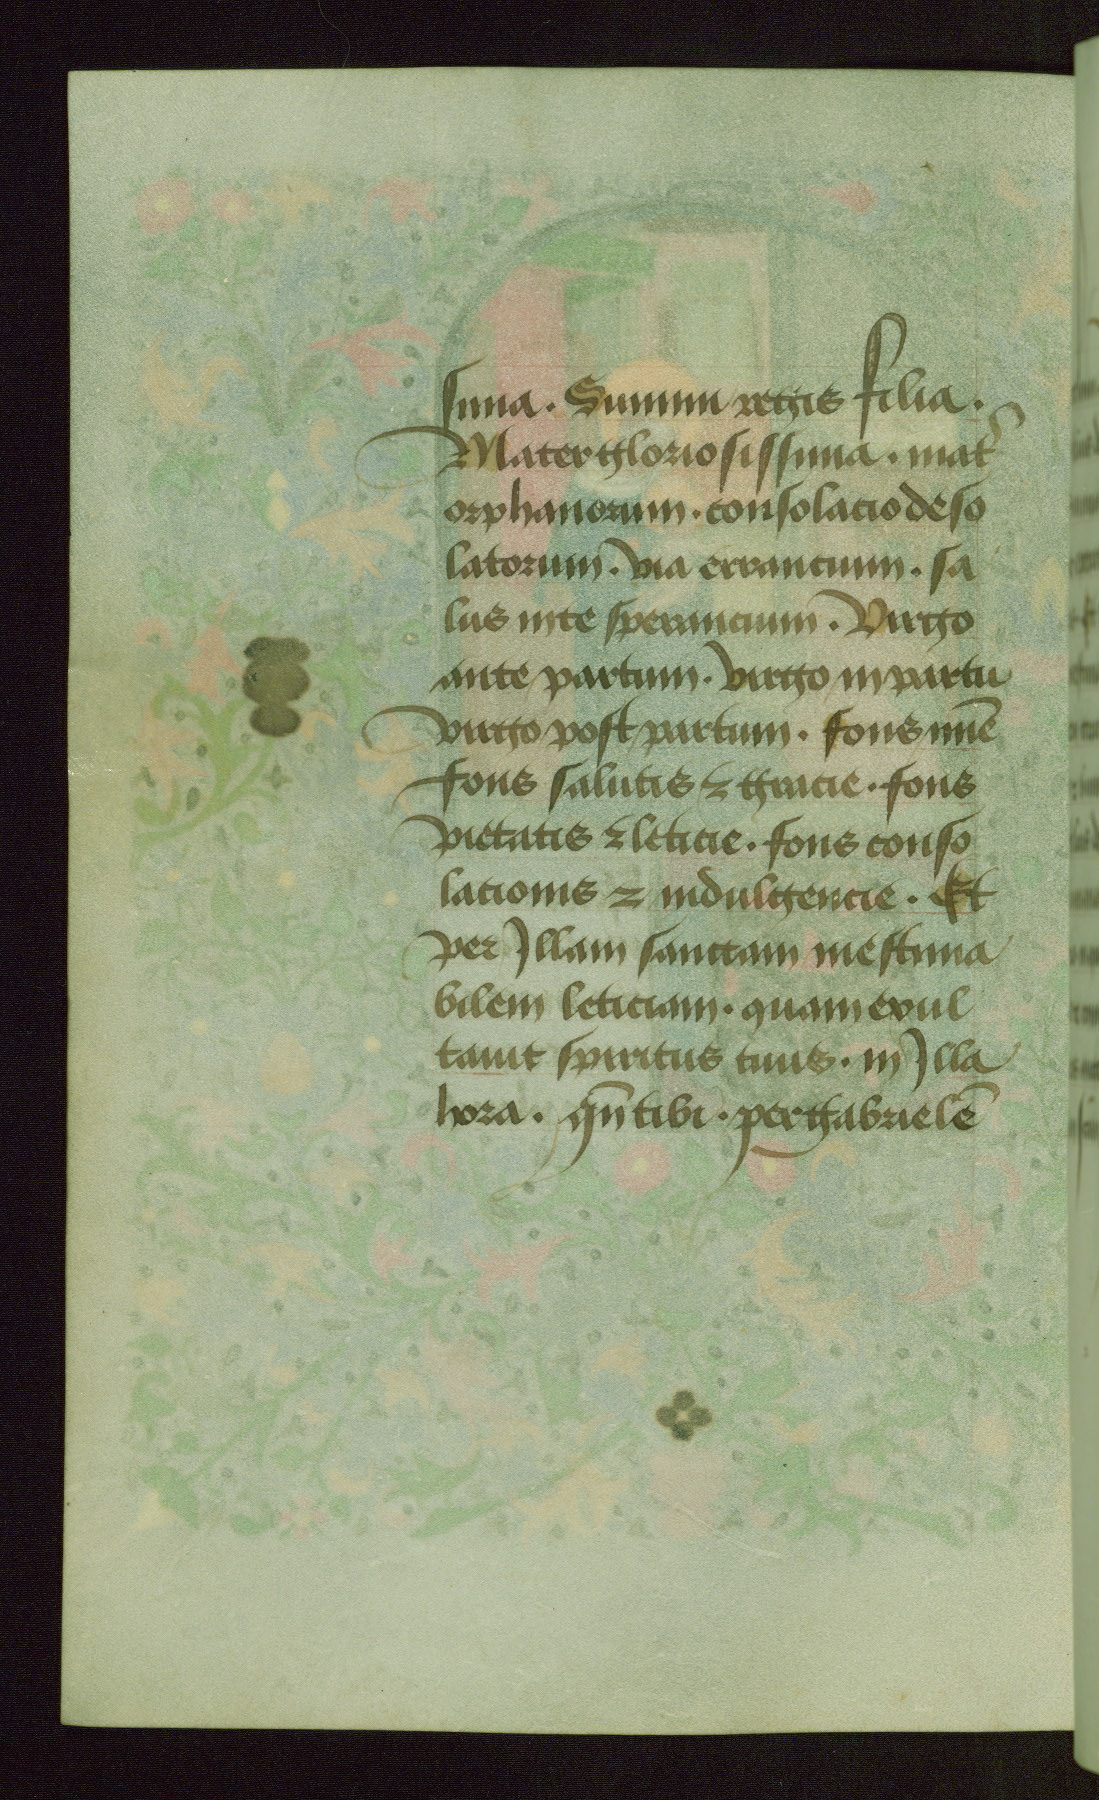 sima. Summi regis filia.
Mater gloriosissima. mat
orphanorum. consolacio deso
latorum. via errancium. sa
lus in te sperancium. Virgo
ante partum. virgo in partu
virgo post partum. fons mīe
fons salutis ⁊ gracie. fons
pietatis ⁊ leticie. fons conso
lationis ⁊ indulgencie. Et
per Illam sanctam inestima
bilem leticiam. quam exul
tauit spiritus tuus. in Illa
hora. qn̄ tibi. per gabrielē